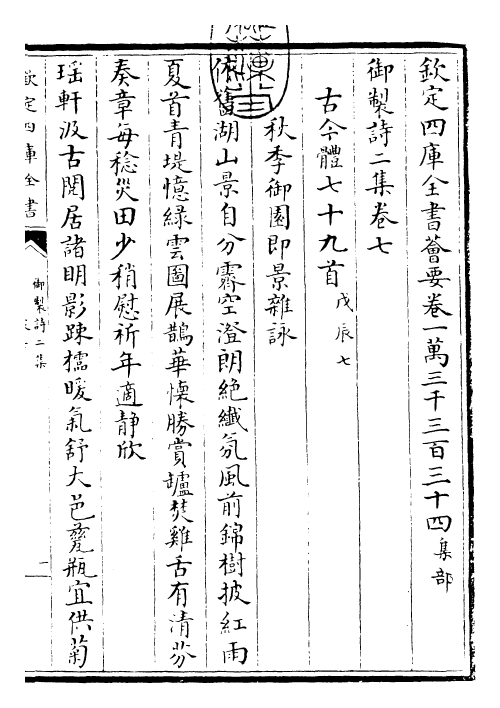 欽定四庫全書薈要卷一萬三千三百三十四集部
御製詩二集卷七
古今體七十九首戊辰七
秋季御園即景雜詠
依舊湖山景自分霽空澄朗絶纎氛風前錦樹披紅雨
夏首青堤憶緑雲圖展鵲華懷勝賞罏焚雞舌有清芬
奏章每稔災田少稍慰祈年適静欣
瑶軒汲古閒居諸明影踈櫺暖氣舒大邑甆瓶宜供菊
欽定四庫全書
御製詩二集
一